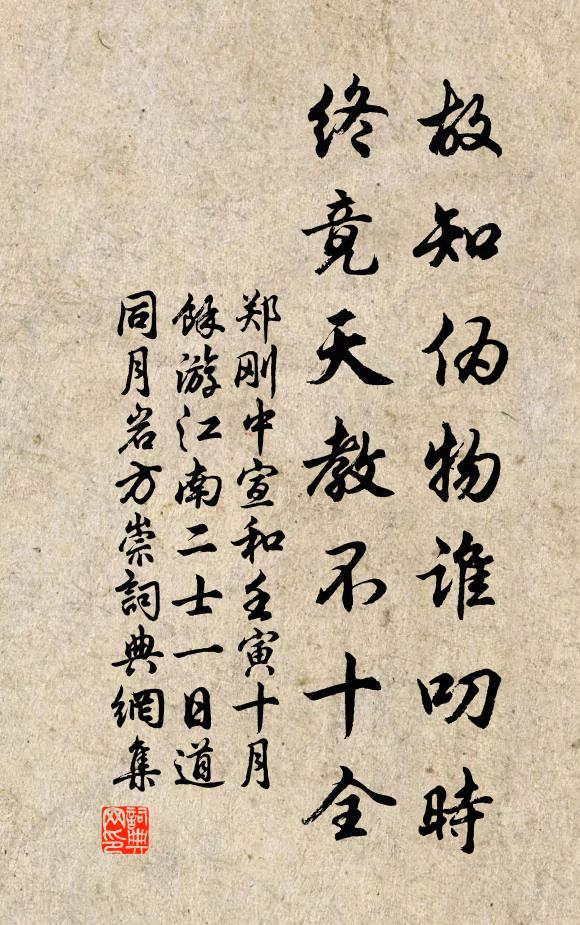 故知伪物谁叨時
终竟天教不十全
郑刚中宣和壬寅十月
馀游江南二士一日道
同月岩方崇詞典網集
詞典网印